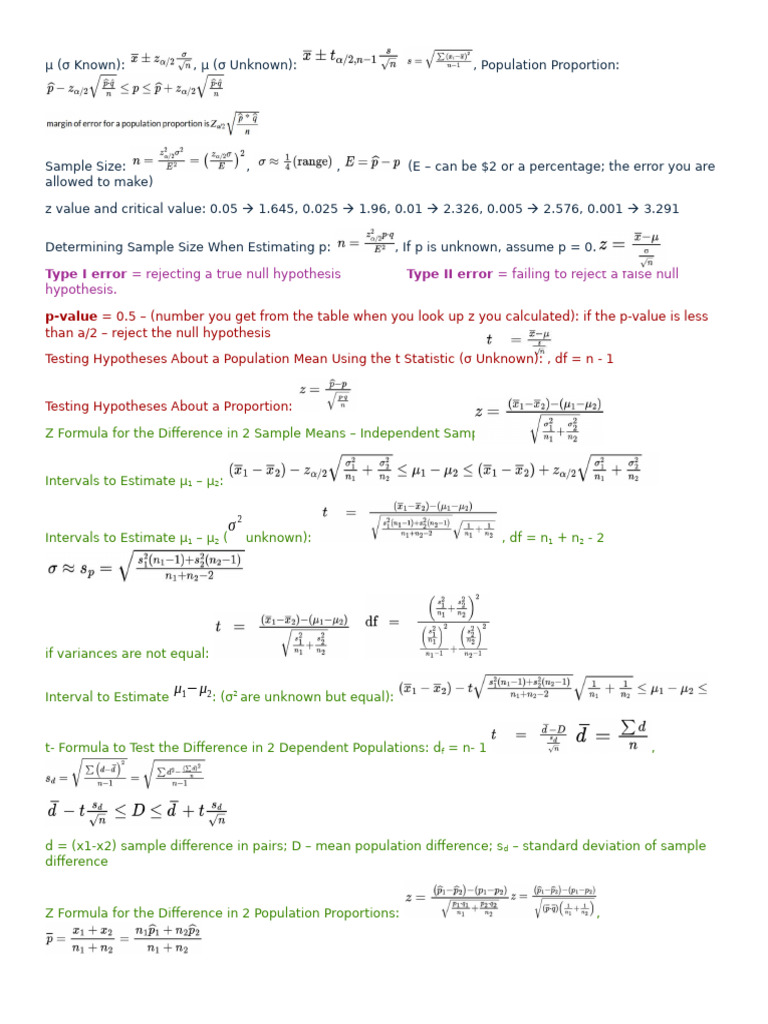 µ (σ Known): x̅ ± z_{α/2} σ/√n, µ (σ Unknown): x̅ ± t_{α/2,n−1} s/√n s = √(∑(x_i−x̅)²/(n−1)), Population Proportion:
p̂ − z_{α/2}√(p̂·q̂/n) ≤ p ≤ p̂ + z_{α/2}√(p̂·q̂/n)
margin of error for a population proportion is Z_{α/2}√(p̂ * q̂/n)
Sample Size: n = z²_{α/2}σ²/E² = (z_{α/2}σ/E)², σ ≈ ¼(range), E = p̂ − p (E – can be $2 or a percentage; the error you are
allowed to make)
z value and critical value: 0.05 → 1.645, 0.025 → 1.96, 0.01 → 2.326, 0.005 → 2.576, 0.001 → 3.291
Determining Sample Size When Estimating p: n = z²_{α/2}p·q/E², If p is unknown, assume p = 0. z = (x̅−μ)/(σ/√n)
Type I error = rejecting a true null hypothesis Type II error = failing to reject a false null
hypothesis.
p-value = 0.5 – (number you get from the table when you look up z you calculated): if the p-value is less
than a/2 – reject the null hypothesis t = (x̅−μ)/(s/√n)
Testing Hypotheses About a Population Mean Using the t Statistic (σ Unknown): , df = n - 1
Testing Hypotheses About a Proportion: z = (p̂−p)/√(p·q/n)
Z Formula for the Difference in 2 Sample Means – Independent Samp z = ((x̅₁−x̅₂)−(μ₁−μ₂))/√(σ₁²/n₁+σ₂²/n₂)
Intervals to Estimate µ₁ – µ₂: (x̅₁ − x̅₂) − z_{α/2}√(σ₁²/n₁ + σ₂²/n₂) ≤ μ₁ − μ₂ ≤ (x̅₁ − x̅₂) + z_{α/2}√(σ₁²/n₁ + σ₂²/n₂)
Intervals to Estimate µ₁ – µ₂ (σ² unknown): t = ((x̅₁−x̅₂)−(μ₁−μ₂))/(√((s₁²(n₁−1)+s₂²(n₂−1))/(n₁+n₂−2))√(1/n₁+1/n₂)), df = n₁ + n₂ - 2
σ ≈ s_p = √((s₁²(n₁−1)+s₂²(n₂−1))/(n₁+n₂−2))
if variances are not equal: t = ((x̅₁−x̅₂)−(μ₁−μ₂))/√(s₁²/n₁+s₂²/n₂) df = (s₁²/n₁+s₂²/n₂)²/((s₁²/n₁)²/(n₁−1)+(s₂²/n₂)²/(n₂−1))
Interval to Estimate μ₁−μ₂: (σ² are unknown but equal): (x̅₁ − x̅₂) − t√((s₁²(n₁−1)+s₂²(n₂−1))/(n₁+n₂−2))√(1/n₁ + 1/n₂) ≤ μ₁ − μ₂ ≤
t- Formula to Test the Difference in 2 Dependent Populations: d_f = n- 1 t = (d̅−D)/(s_d/√n) d̅ = ∑d/n,
s_d = √(∑(d−d̅)²/(n−1)) = √((∑d²−(∑d)²/n)/(n−1))
d̅ − t s_d/√n ≤ D ≤ d̅ + t s_d/√n
d = (x1-x2) sample difference in pairs; D – mean population difference; s_d – standard deviation of sample
difference
Z Formula for the Difference in 2 Population Proportions: z = ((p̂₁−p̂₂)−(p₁−p₂))/√(p₁·q₁/n₁+p₂·q₂/n₂) z = ((p̂₁−p̂₂)−(p₁−p₂))/√((p̅·q̅)(1/n₁+1/n₂)),
p̅ = (x₁ + x₂)/(n₁ + n₂) = (n₁p̂₁ + n₂p̂₂)/(n₁ + n₂)